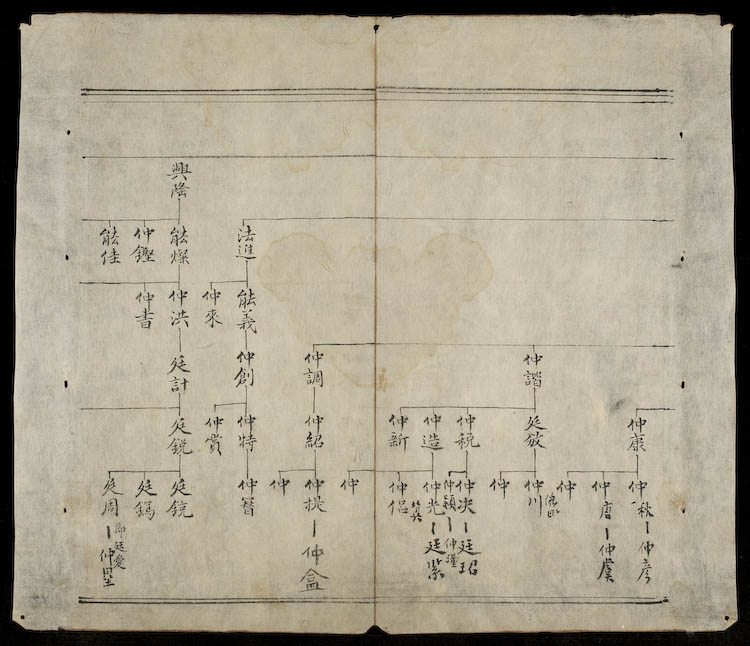 興隆
法進
能燦
仲鏗
能佳
能義
仲來
仲洪
仲書
仲諧
仲調
仲創
廷計
仲康
廷放
仲税
仲造
仲新
仲紹
仲特
仲賞
廷鋭
仲秋
仲彦
仲唐
仲虞
仲
仲川
仲
仲决
廷玿
仲穎
仲瑾
仲光
廷紫
仲侶
仲
仲提
仲盒
仲
仲簪
廷鏡
廷鎢
廷周
即廷愛
仲